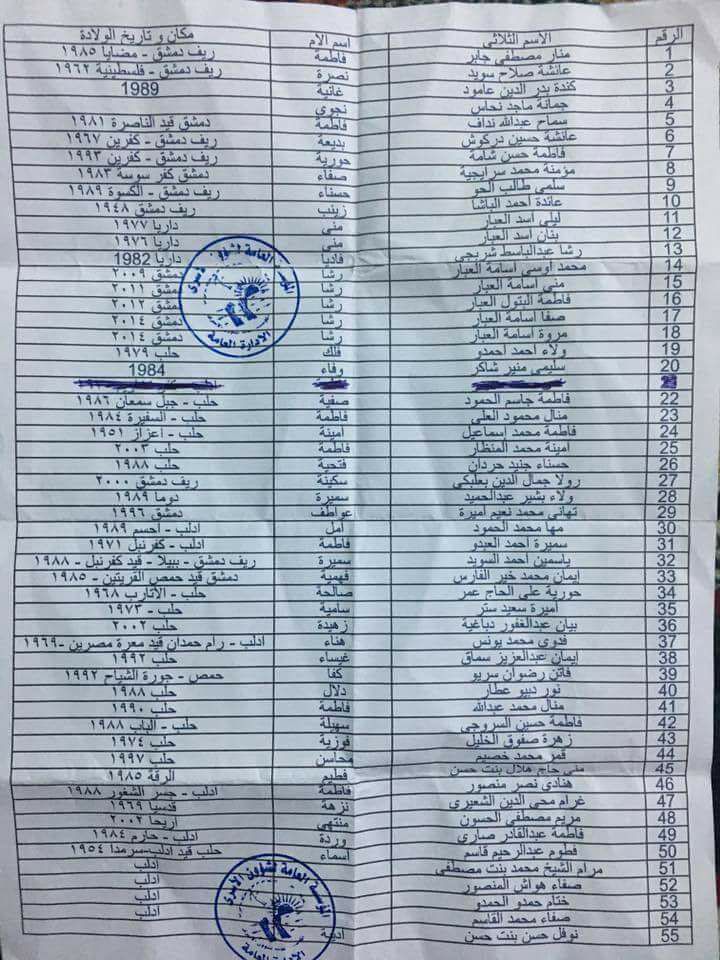 الرقم الاسم الثلاثي اسم الام مكان و تاريخ الولادة
1 منار مصطفى جابر فاطمة ريف دمشق - مضايا ١٩٨٥
2 عائشة صلاح سويد نصرة ريف دمشق - فلسطينية ١٩٦٢
3 كندة بدر الدين عامود غانية 1989
4 جمانة ماجد نحاس نجوى
5 سماح عبدالله نداف فاطمة دمشق قيد الناصرة ١٩٨١
6 عائشة حسين دركوش بديعة ريف دمشق - كفرين ١٩٦٧
7 فاطمة حسن شامة حورية ريف دمشق - كفرين ١٩٩٣
8 مؤمنة محمد سرايجية صفاء دمشق كفر سوسة ١٩٨٣
9 سلمى طالب الحو حسناء ريف دمشق - الكسوة ١٩٨٩
10 عائدة احمد الباشا زينب ريف دمشق ١٩٤٨
11 ليلى اسد العبار منى داريا ١٩٧٧
12 بنان اسد العبار منى داريا ١٩٧٦
13 رشا عبدالباسط شربجي فاديا داريا 1982
14 محمد أوسى أسامة العبار رشا دمشق ٢٠٠٩
15 منى أسامة العبار رشا دمشق ٢٠١١
16 فاطمة البتول العبار رشا دمشق ٢٠١٢
17 صفا اسامة العبار رشا دمشق ٢٠١٤
18 مروة اسامة العبار رشا دمشق ٢٠١٤
19 ولاء احمد احمدو فلك حلب ١٩٧٩
20 سليمى منير شاكر وفاء 1984
22 فاطمة جاسم الحمود صفية حلب - جبل سمعان ١٩٨٦
23 منال محمود العلي فاطمة حلب - السفيرة ١٩٨٤
24 فاطمة محمد إسماعيل امينة حلب - اعزاز ١٩٥١
25 امينة محمد المنظار فاطمة حلب ٢٠٠٣
26 حسناء جنيد حردان فتحية حلب ١٩٨٨
27 رولا جمال الدين بعلبكي سكينة ريف دمشق ٢٠٠٠
28 ولاء بشير عبدالحميد سميرة دوما ١٩٨٩
29 تهاني محمد نعيم اميرة عواطف دمشق ١٩٩٦
30 مها محمد الحمود أمل ادلب - احسم ١٩٨٩
31 سميرة احمد العبدو فاطمة ادلب - كفرنبل ١٩٧١
32 ياسمين احمد السويد سميرة ريف دمشق - ببيلا - قيد كفرنبل - ١٩٨٨
33 إيمان محمد خير الفارس فهمية دمشق قيد حمص القريتين - ١٩٨٥
34 حورية علي الحاج عمر صالحة حلب - الأتارب ١٩٦٨
35 أميرة سعيد ستر سامية حلب - ١٩٧٣
36 بيان عبدالغفور دباغية زهيدة حلب ٢٠٠٢
37 فدوى محمد يونس هناء ادلب - رام حمدان قيد معرة مصرين -١٩٦٩
38 إيمان عبدالعزيز سماق غيساء حلب ١٩٩٢
39 فاتن رضوان سريو كفا حمص - جورة الشياح ١٩٩٢
40 نور ديبو عطار دلال حلب ١٩٨٨
41 منال محمد عبدالله فاطمة حلب ١٩٩٠
42 فاطمة حسين السروجي سهيلة حلب - الباب ١٩٨٨
43 زهرة صفوق الخليل فوزية حلب ١٩٧٤
44 قمر محمد خصيم محاسن حلب ١٩٩٧
45 منى حاج هلال بنت حسن فطيم الرقة ١٩٨٥
46 هنادي نصر منصور فاطمة ادلب - جسر الشغور ١٩٨٨
47 غرام محي الدين الشعيري نزهة قدسيا ١٩٦٩
48 مريم مصطفى الحسون منتهى اريحا ٢٠٠٢
49 فاطمة عبدالقادر صاري وردة ادلب - حارم ١٩٨٤
50 فطوم عبدالرحيم قاسم اسماء حلب قيد ادلب-سرمدا ١٩٥٤
51 مرام الشيخ محمد بنت مصطفى ادلب
52 صفاء هواش المنصور ادلب
53 ختام حمدو الحمدو ادلب
54 صفاء محمد القاسم ادلب
55 نوفل حسن بنت حسن
المؤسسة العامة لشؤون الأسرى
الإدارة العامة
المؤسسة العامة لشؤون الأسرى
الإدارة العامة